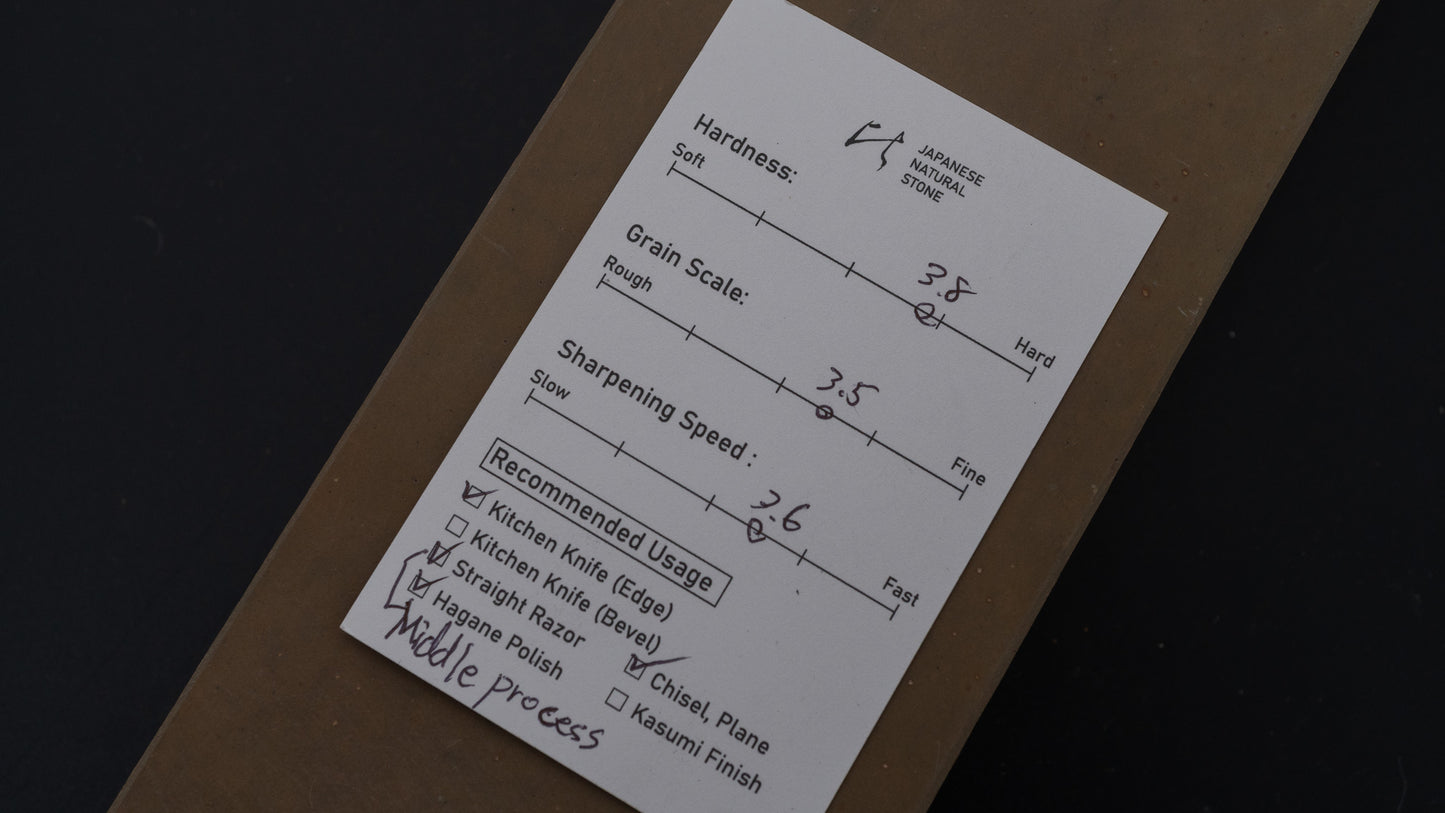 JAPANESE
NATURAL
STONE
Hardness:
Soft
3.8
Hard
Grain Scale:
Rough
3.5
Fine
Sharpening Speed :
Slow
3.6
Fast
Recommended Usage
Kitchen Knife (Edge)
Kitchen Knife (Bevel)
Straight Razor
Hagane Polish
Chisel, Plane
Kasumi Finish
Middle process